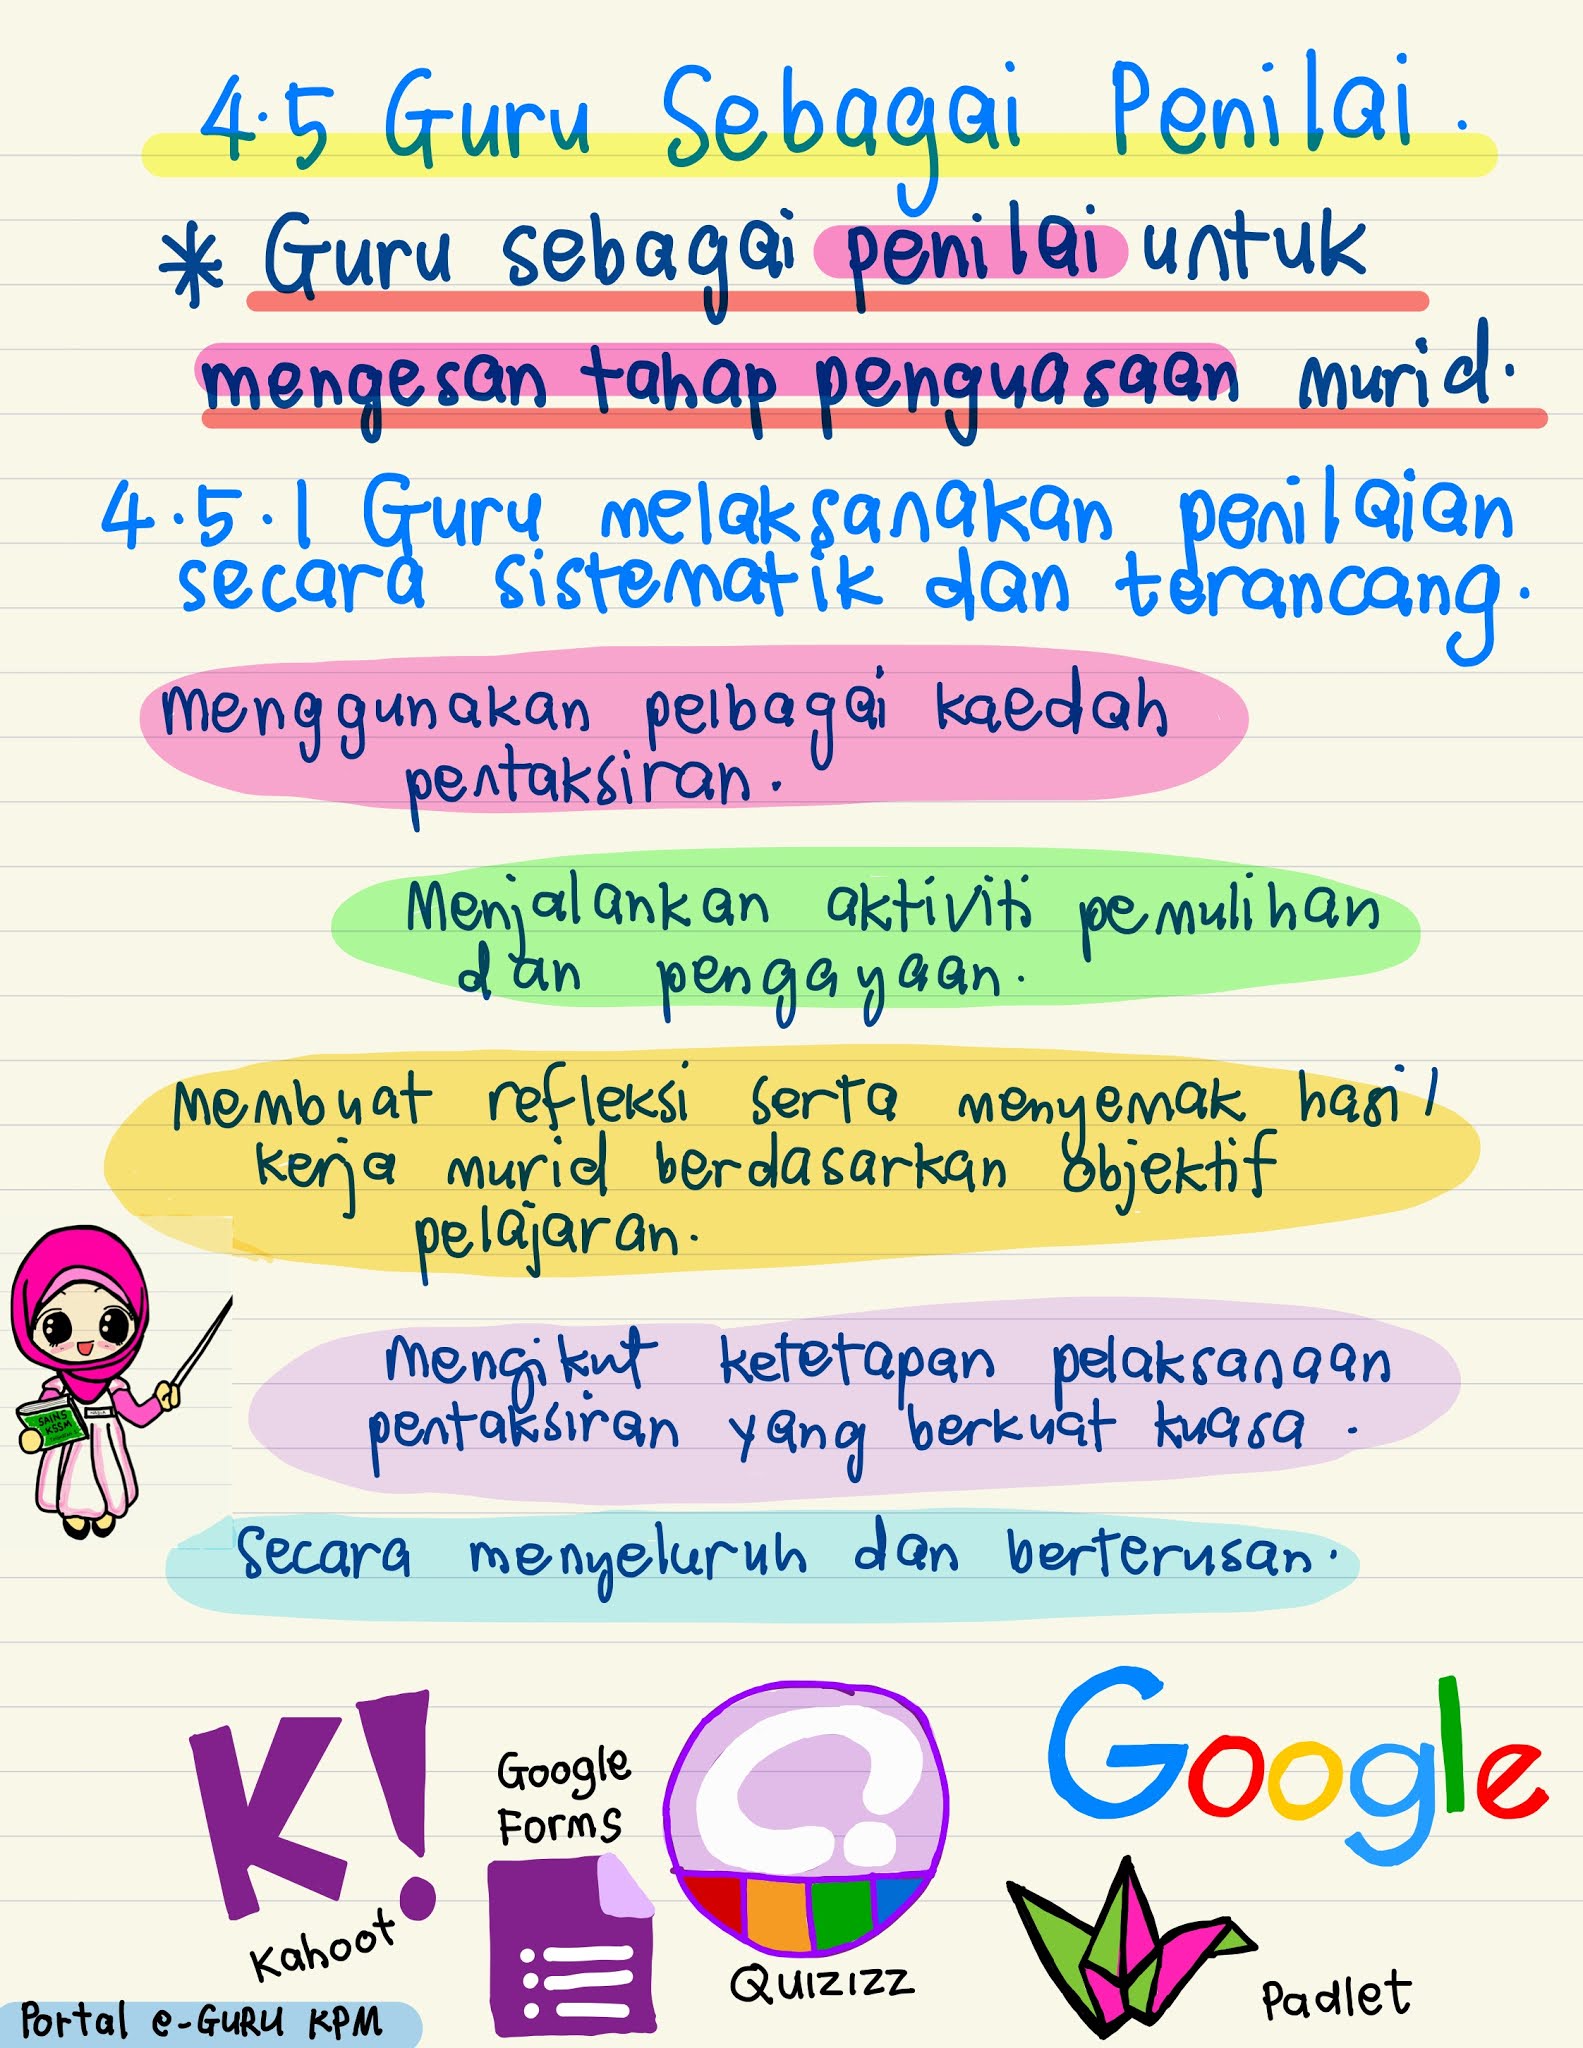 4.5 Guru Sebagai Penilai.
* Guru sebagai penilai untuk
mengesan tahap penguasaan murid.
4.5.1 Guru melaksanakan penilaian
secara sistematik dan terancang.
Menggunakan pelbagai kaedah
pentaksiran.
Menjalankan aktiviti pemulihan
dan pengayaan.
Membuat refleksi serta menyemak hasil
kerja murid berdasarkan objektif
pelajaran.
Mengikut ketetapan pelaksanaan
pentaksiran yang berkuat kuasa.
Secara menyeluruh dan berterusan.
SAINS
KSSM
K!
Kahoot
Google
Forms
Quizizz
Google
Padlet
Portal e-GURU KPM